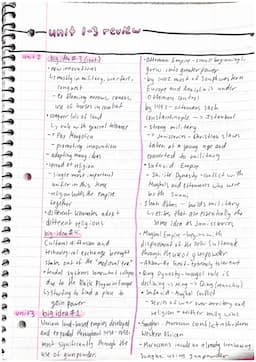 unit 1-3 review
unit 2
big idea # 3 (cont)
• new innovations
↳ mostly in military, warfare,
conquest
use of horses in combat
• conquer lots of land
↳ rule with general tolerance
↳ Pax Mongolica
- promoting innovation
• adopting many ideas
• spread of religion
- single most important
unifier in this time
- religion holds the empire
together
• different Khanates adopt
different religions
big idea # 4
Cultural diffusion and
technological exchange brought
states out of the "medieval era"
• feudal systems somewhat collapse
due to the Black Plague in Europe
gain power
unit 3
big idea # 1
Various land-based empires developed
and expanded throughout 1450-1750,
most significantly through the
use of gunpowder.
• Ottoman Empire - small beginnings,
grows into greater power
by 1450 most of Southwestern
Europe and Anatolia is under
Ottoman control
by 1453 - Ottomans sack
Constantinople → Istanbul
- strong military
** Janissaries - Christian slaves
taken at a young age and
converted to military
• Safavid Empire
- Shi'ite Dynasty - conflict with
Mughals and Ottomans who were
both Sunni
- slave armies - builds military
same idea as Janissaries
• Mughal Empire - begins with
displacement of the Delhi Sultanate
through the use of gunpowder
• Qing Dynasty - mongol rule is
• Safavid-Mughal Conflict
- series of wars over territory and
religion - neither really wins
• Songhai - Moroccan conflict → Northern
Western Africa
- Moroccans would be already invading
Songhai using gunpowder